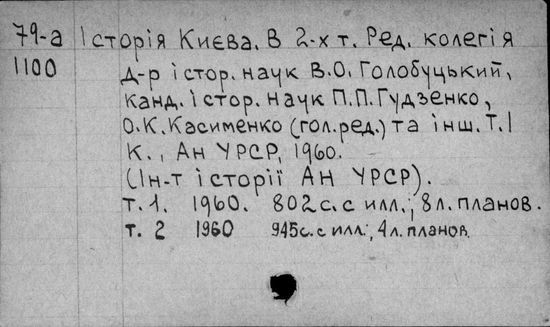 79-а Історія Києва. В 2-х т. Ред. колегія
1100 д-р істор. наук В.О. Голобуцький,
канд. істор. наук П.П. Гудзенко,
О.К. Касименко (гол. ред.) та інш. Т.1
К., Ан УРСР, 1960.
(Ін-т історії Ан УРСР).
т. 1. 1960. 802 с. с илл.; 8 л. планов.
т. 2 1960 945 с. с илл.; 4 л. планов.